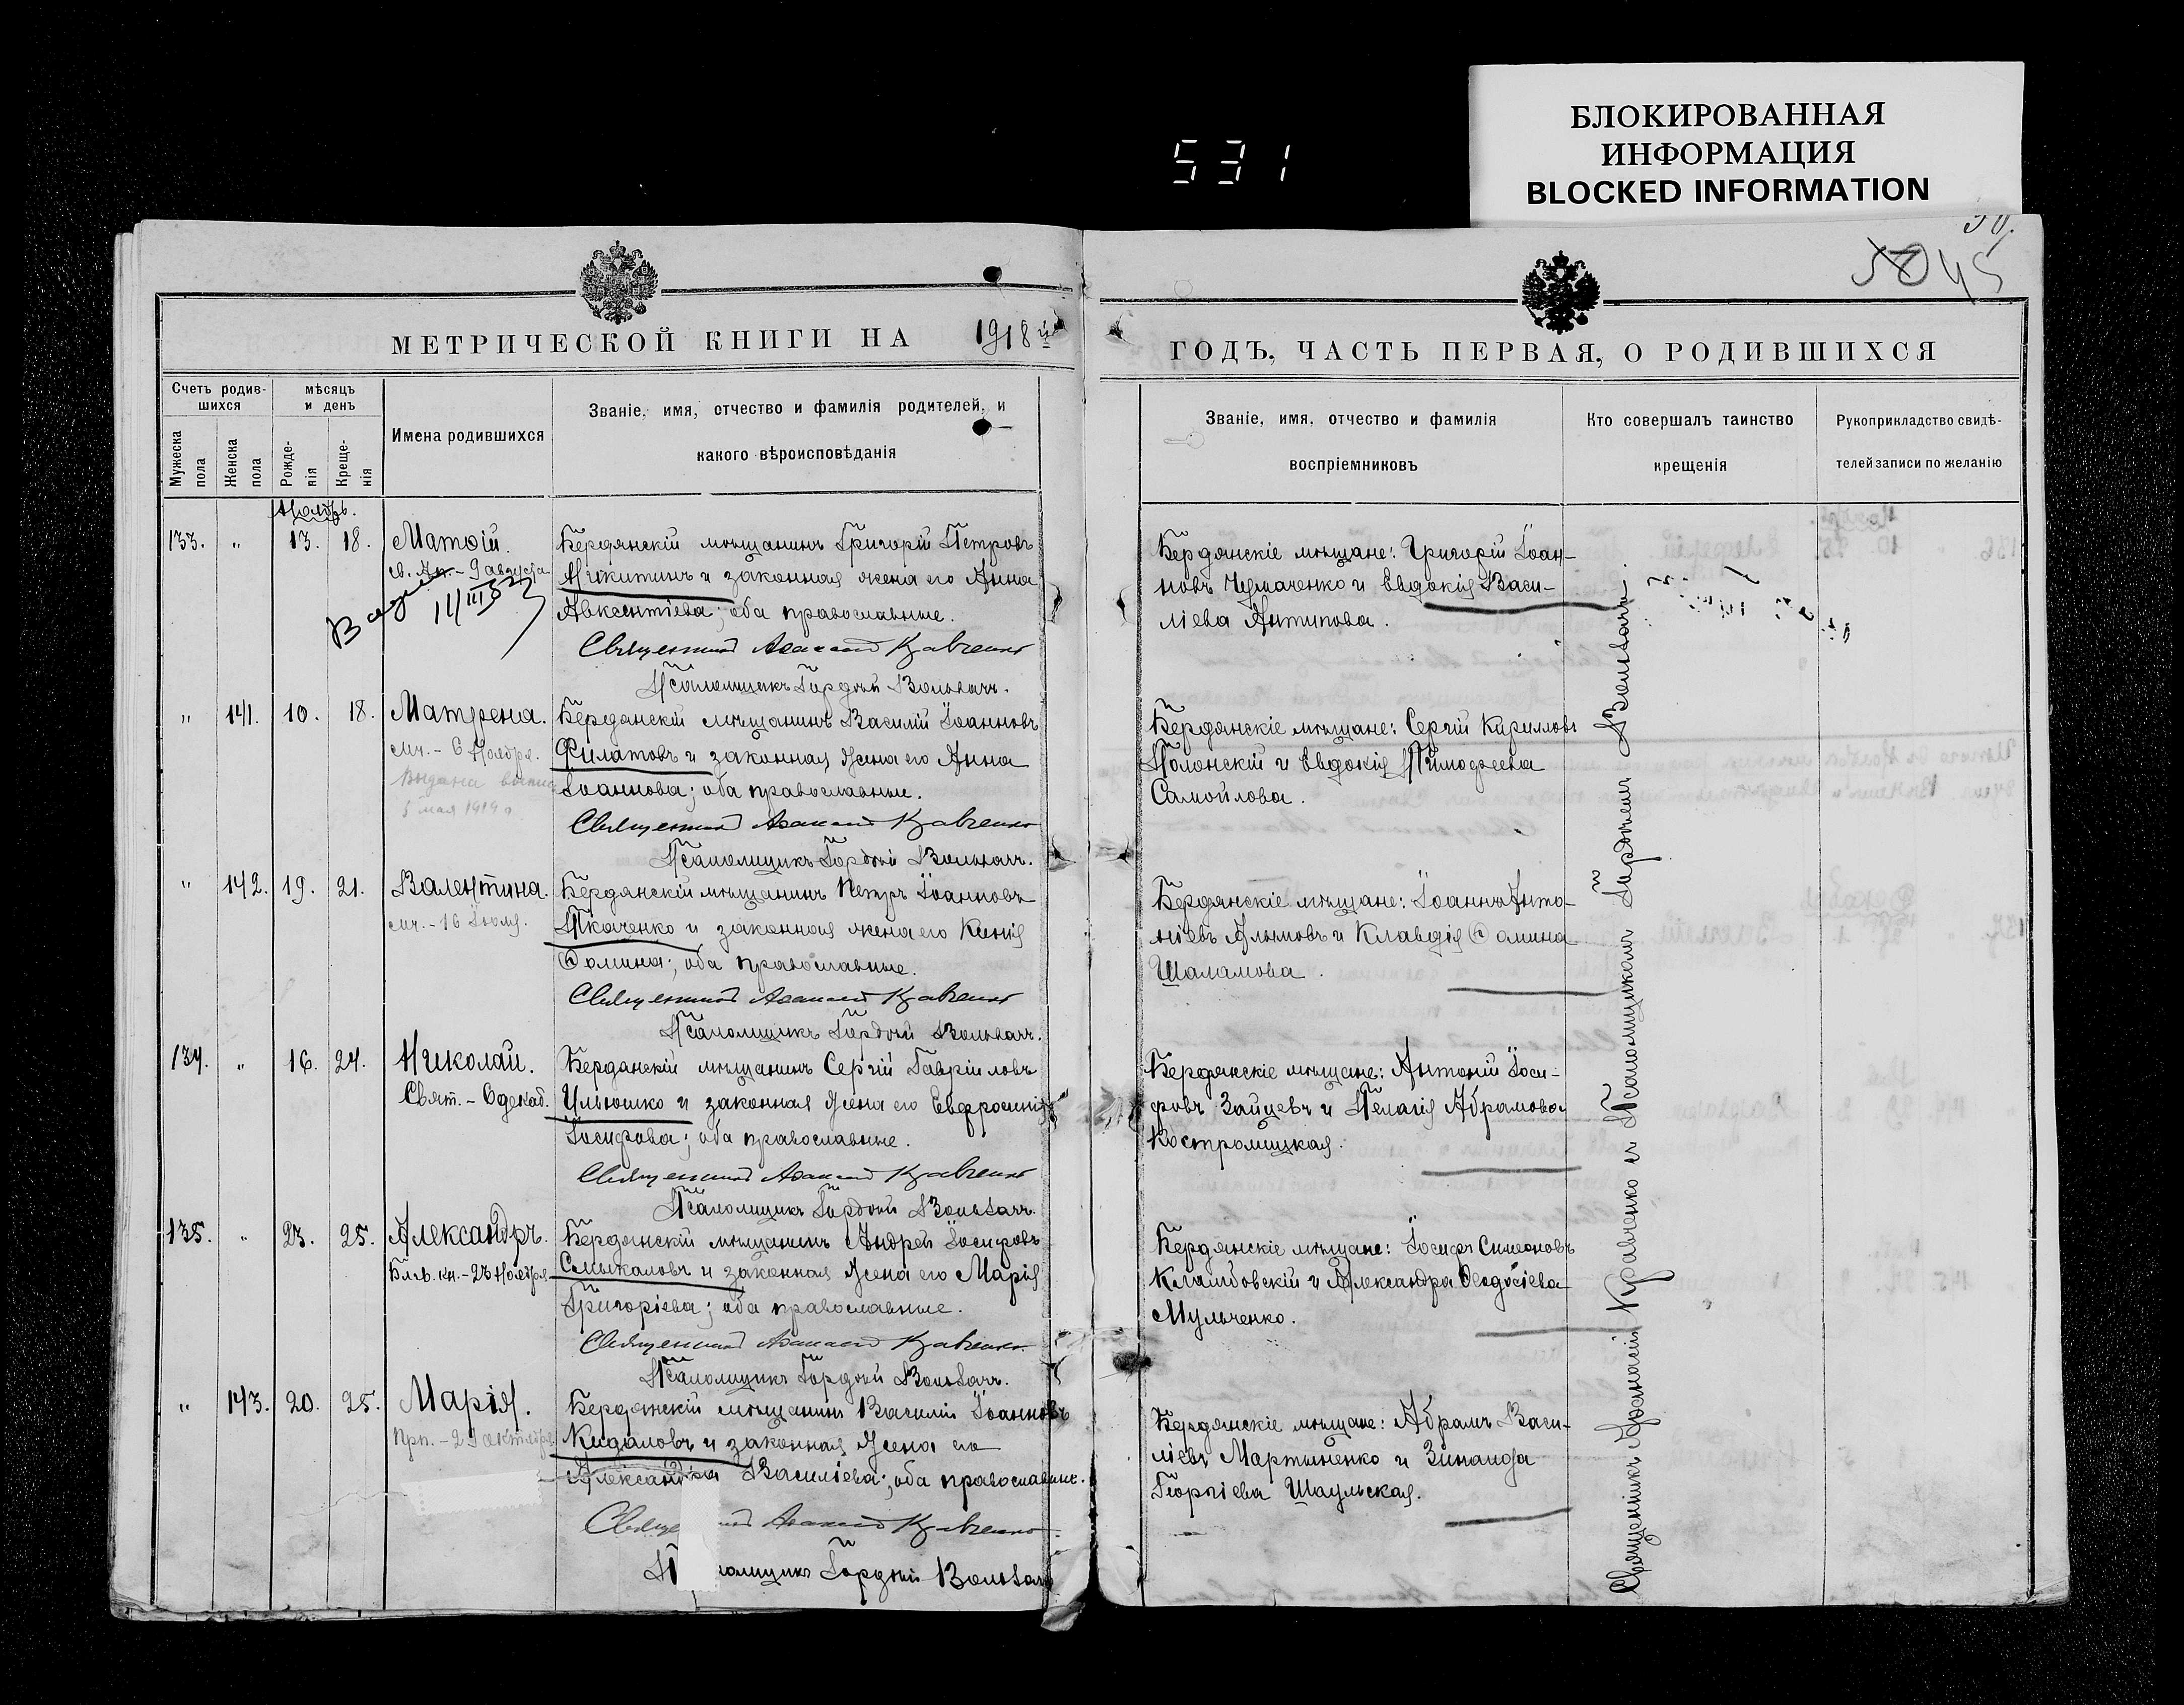 БЛОКИРОВАННАЯ
ИНФОРМАЦИЯ
BLOCKED INFORMATION
531
50 45
МЕТРИЧЕСКОЙ КНИГИ НА 1918 й
Счетъ родив-
шихся
мѣсяцъ
и день
Мужеска
пола
Женска
пола
Рожде-
нія
Креще-
нія
Имена родившихся
Званіе, имя, отчество и фамилія родителей, и
какого вѣроисповѣданія
Ноябрь.
133. " 13. 18. Матѳій. Бердянскій мѣщанинъ Григорій Петровъ
св. Ап. - 9 августа Никитинъ и законная жена его Анна
Авксентіева; оба православные.
Священникъ Аѳанасій Кравченко
Псаломщикъ Гордѣй Вольвачъ.
" 141. 10. 18. Матрена. Бердянскій мѣщанинъ Василій Іоанновъ
мч. - 6 Ноября. Филатовъ и законная жена его Анна
Выдана
Іоаннова; оба православные.
5 мая 1919
Священникъ Аѳанасій Кравченко
Псаломщикъ Гордѣй Вольвачъ.
" 142. 19. 21. Валентина. Бердянскій мѣщанинъ Петръ Іоанновъ
мч. - 16 Іюля. Ткаченко и законная жена его Ксенія
Ѳомина; оба православные.
Священникъ Аѳанасій Кравченко
Псаломщикъ Гордѣй Вольвачъ.
134. " 16. 24. Николай. Бердянскій мѣщанинъ Сергій Гавріиловъ
Свят. - 6 декаб. Ильюшко и законная жена его Евфросинія
Іосифова; оба православные.
Священникъ Аѳанасій Кравченко
Псаломщикъ Гордѣй Вольвачъ.
135. " 23. 25. Александръ. Бердянскій мѣщанинъ Андрей Іосифовъ
Блгв. кн. - 23 Ноября Смыкаловъ и законная жена его Марія
Григоріева; оба православные.
Священникъ Аѳанасій Кравченко
Псаломщикъ Гордѣй Вольвачъ.
" 143. 20. 25. Марія. Бердянскій мѣщанинъ Василій Іоанновъ
Прп. - 29 октября Кидаловъ и законная жена его
Александра Василіева; оба православные.
Священникъ Аѳанасій Кравченко
Псаломщикъ Гордѣй Вольвачъ
ГОДЪ, ЧАСТЬ ПЕРВАЯ, О РОДИВШИХСЯ
Званіе, имя, отчество и фамилія
воспріемниковъ
Кто совершалъ таинство
крещенія
Рукоприкладство свидѣ-
телей записи по желанію
Бердянскіе мѣщане: Григорій Іоан-
новъ Чумаченко и Евдокія Васи-
ліева Антипова.
Бердянскіе мѣщане: Сергій Кирилловъ
Полонскій и Евдокія Тимоѳеева
Самойлова.
Бердянскіе мѣщане: Іоаннъ Анто-
ніевъ Алымовъ и Клавдія Ѳомина
Шаламова.
Бердянскіе мѣщане: Антоній Іоси-
фовъ Зайцевъ и Пелагія Абрамова
Костромицкая.
Бердянскіе мѣщане: Іосифъ Симеоновъ
Климовскій и Александра Ѳеодосіева
Мульченко.
Бердянскіе мѣщане: Абрамъ Васи-
ліевъ Мартыненко и Зинаида
Георгіева Шаульская.
Священникъ Аѳанасій Кравченко съ Псаломщикомъ Гордѣемъ Вольвачъ.